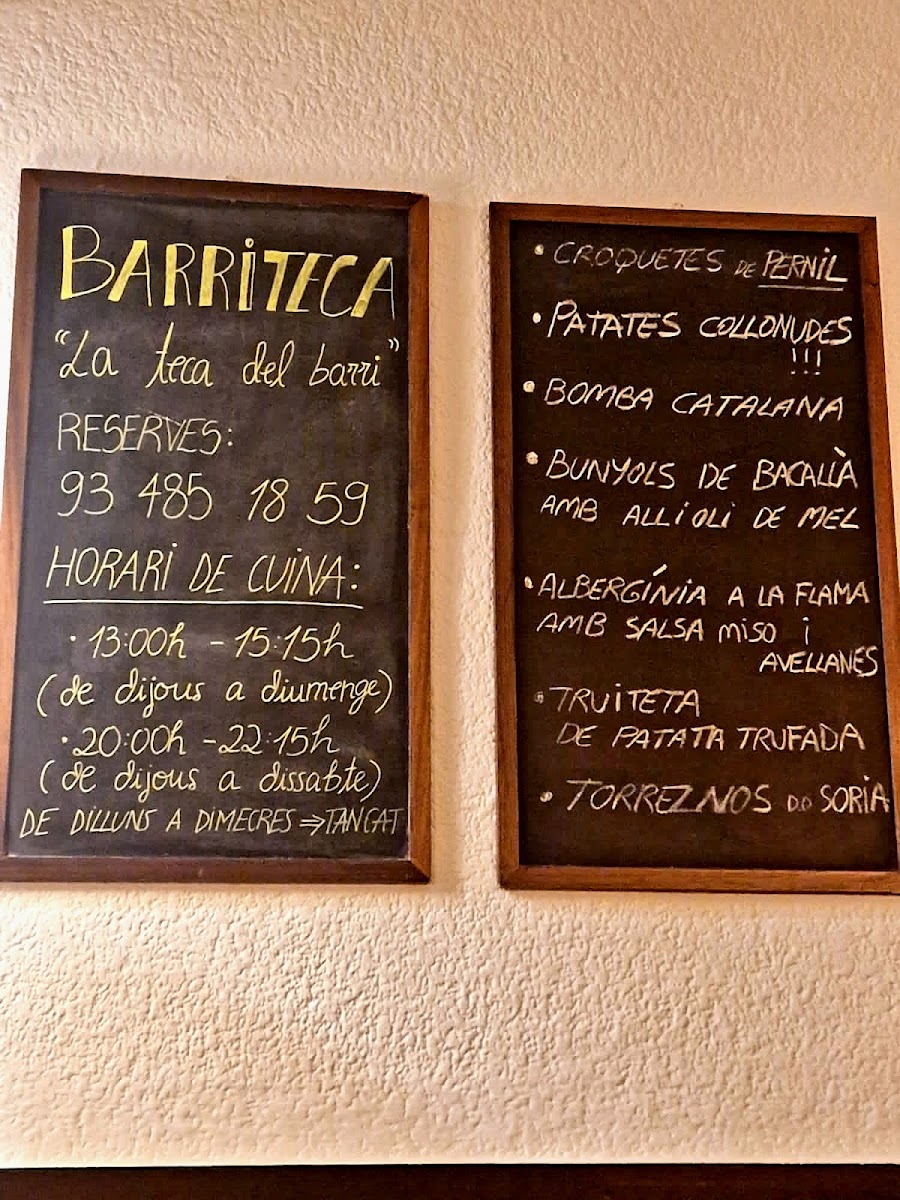 BARRiTECA
"La teca del barri"
RESERVES:
93 485 18 59
HORARi DE CUiNA:
· 13:00h - 15:15h
(de dijous a diumenge)
· 20:00h - 22:15h
(de dijous a dissabte)
DE DiLLUNS A DiMECRES ⇒ TANCAT
· CROQUETES DE PERNiL
· PATATES COLLONUDES
!!!
· BOMBA CATALANA
· BUNYOLS DE BACALLÀ
AMB ALLiOLi DE MEL
· ALBERGÍNiA A LA FLAMA
AMB SALSA MiSO i
AVELLANES
· TRUiTETA
DE PATATA TRUFADA
· TORREZNOS DO SORiA